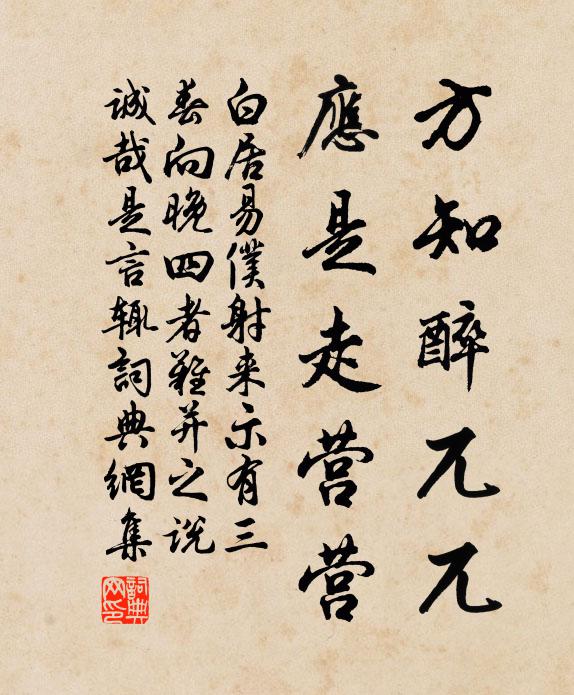 方知醉兀兀
應是走营营
白居易僕射来示有三
春向晚四者難并之说
誠哉是言輒詞典網集
詞典
网印